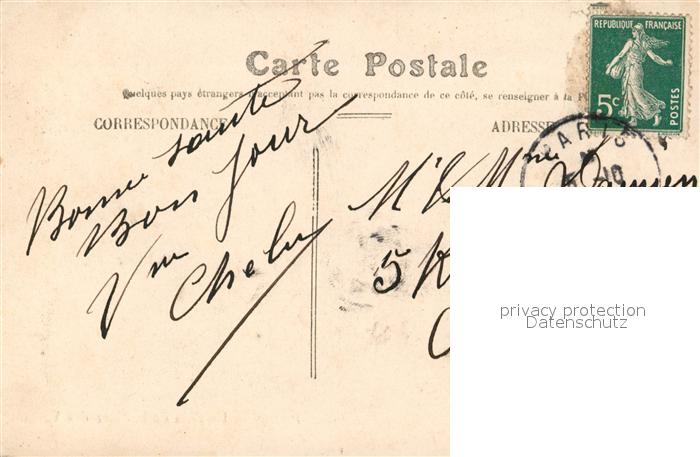 Carte Postale
Quelques pays étrangers n'acceptant pas la correspondance de ce côté, se renseigner à la P
CORRESPONDANCE
ADRESSE
RÉPUBLIQUE FRANÇAISE
5c
POSTES
PARIS
10
Bonne santé
Bon jour
Vve
Mr & Mme
5 R
privacy protection
Datenschutz